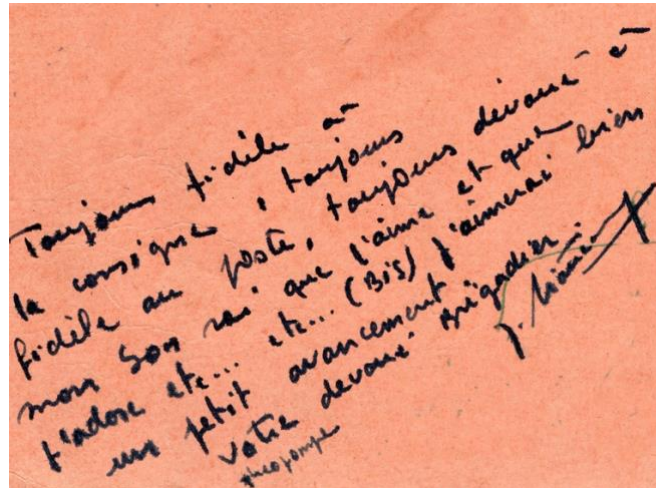 Toujours fidèle à
la consigne, toujours
fidèle au poste, toujours dévoué à
mon Bon roi que j'aime et que
j'adore etc... etc... (BIS) j'aimerai bien
un petit avancement.
votre dévoué Brigadier.
théopompe